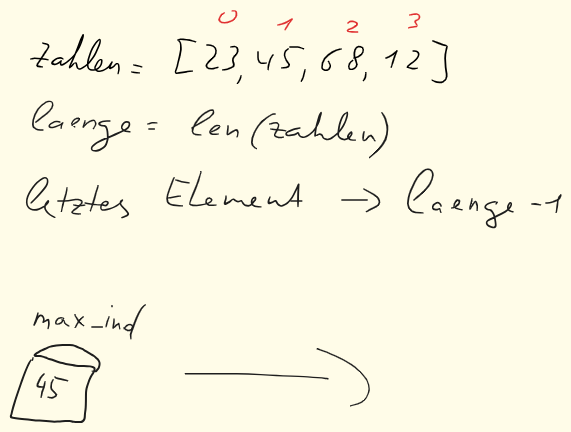 0 1 2 3
zahlen = [23, 45, 68, 12]
laenge = len(zahlen)
letztes Element → laenge -1
max_ind
45